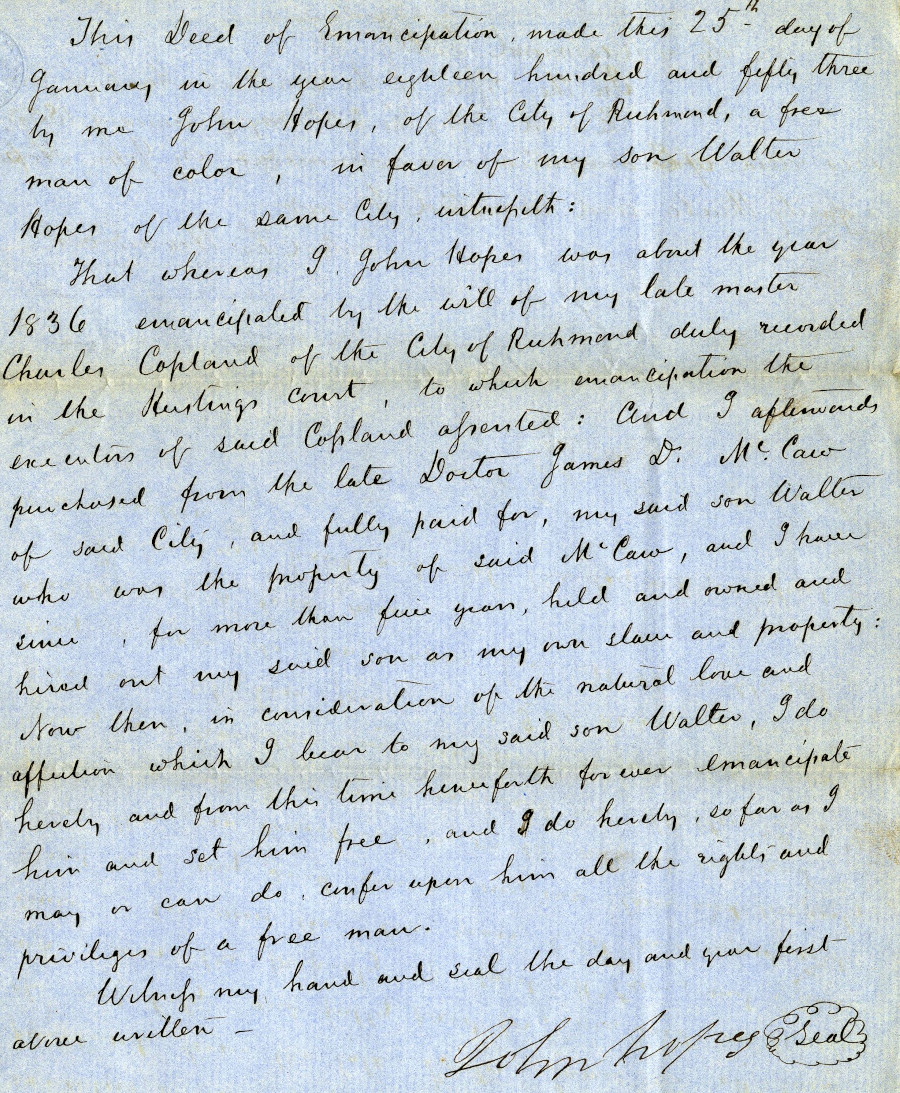 This Deed of Emancipation, made this 25th day of
January, in the year eighteen hundred and fifty three
by me John Hopes, of the City of Richmond, a free
man of color, in favor of my son Walter
Hopes of the same City, witnesseth:
That whereas I John Hopes was about the year
1836 emancipated by the will of my late master
Charles Copland of the City of Richmond duly recorded
in the Hustings court, to which emancipation the
executors of said Copland assented: And I afterwards
purchased from the late Doctor James D. McCaw
of said City, and fully paid for, my said son Walter
who was the property of said McCaw, and I have
since, for more than five years, held and owned and
hired out my said son as my own slave and property:
Now then, in consideration of the natural love and
affection which I bear to my said son Walter, I do
hereby and from this time henceforth forever emancipate
him and set him free, and I do hereby, so far as I
may or can do, confer upon him all the rights and
privileges of a free man.
Witness my hand and seal the day and year first
above written —
John hopes Seal